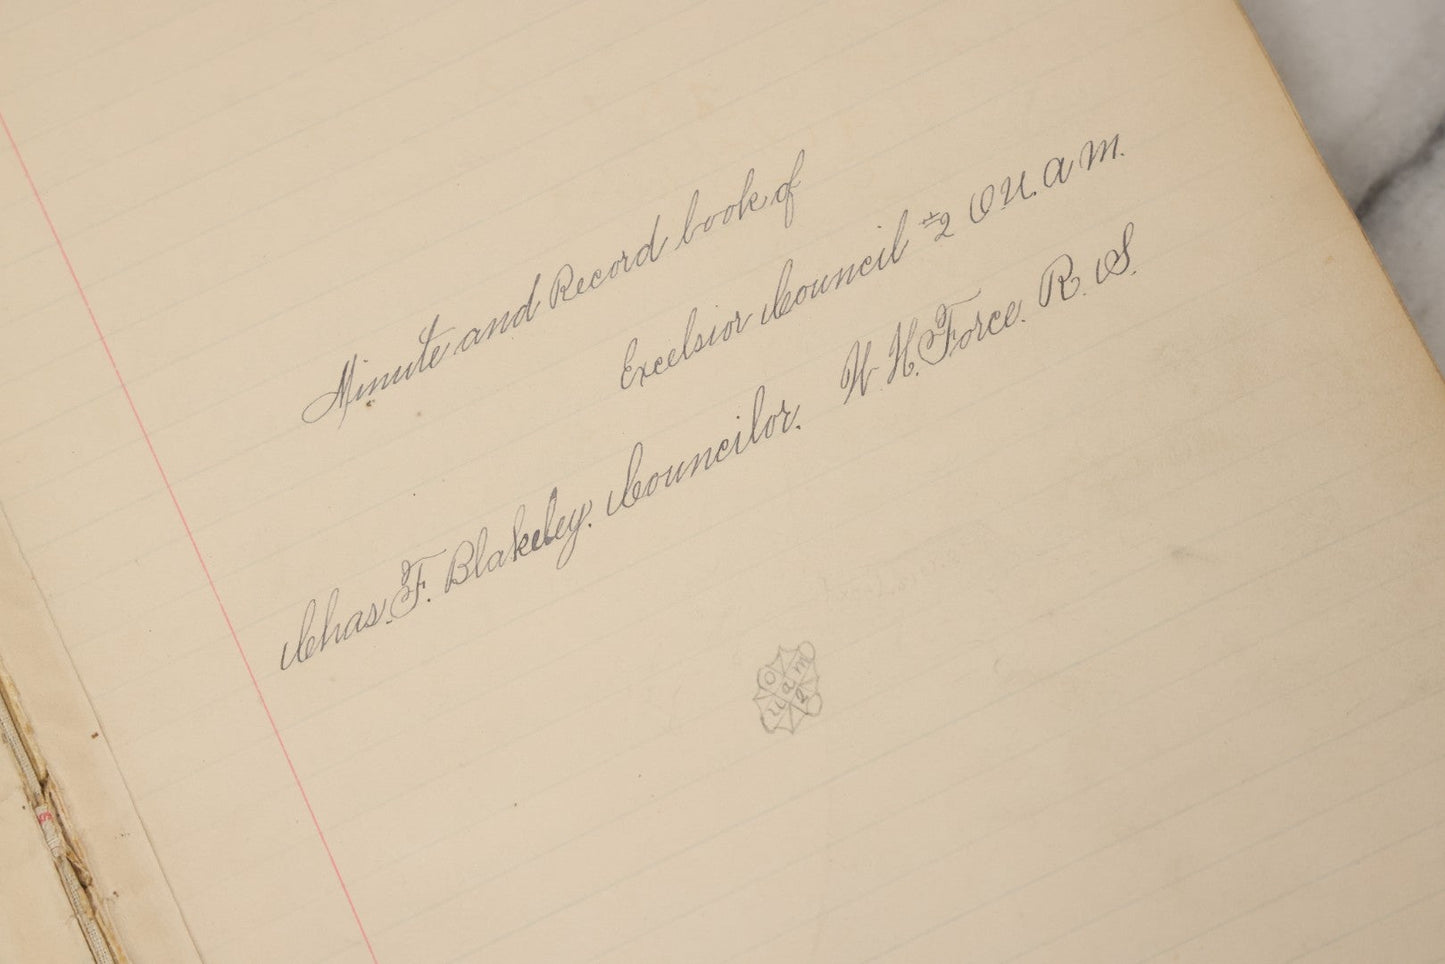 Minute and Record book of
Excelsior Council #2 O.U.A.M.
Chas. F. Blakeley. Councilor. W. H. Force. R. S.
O U A M 2